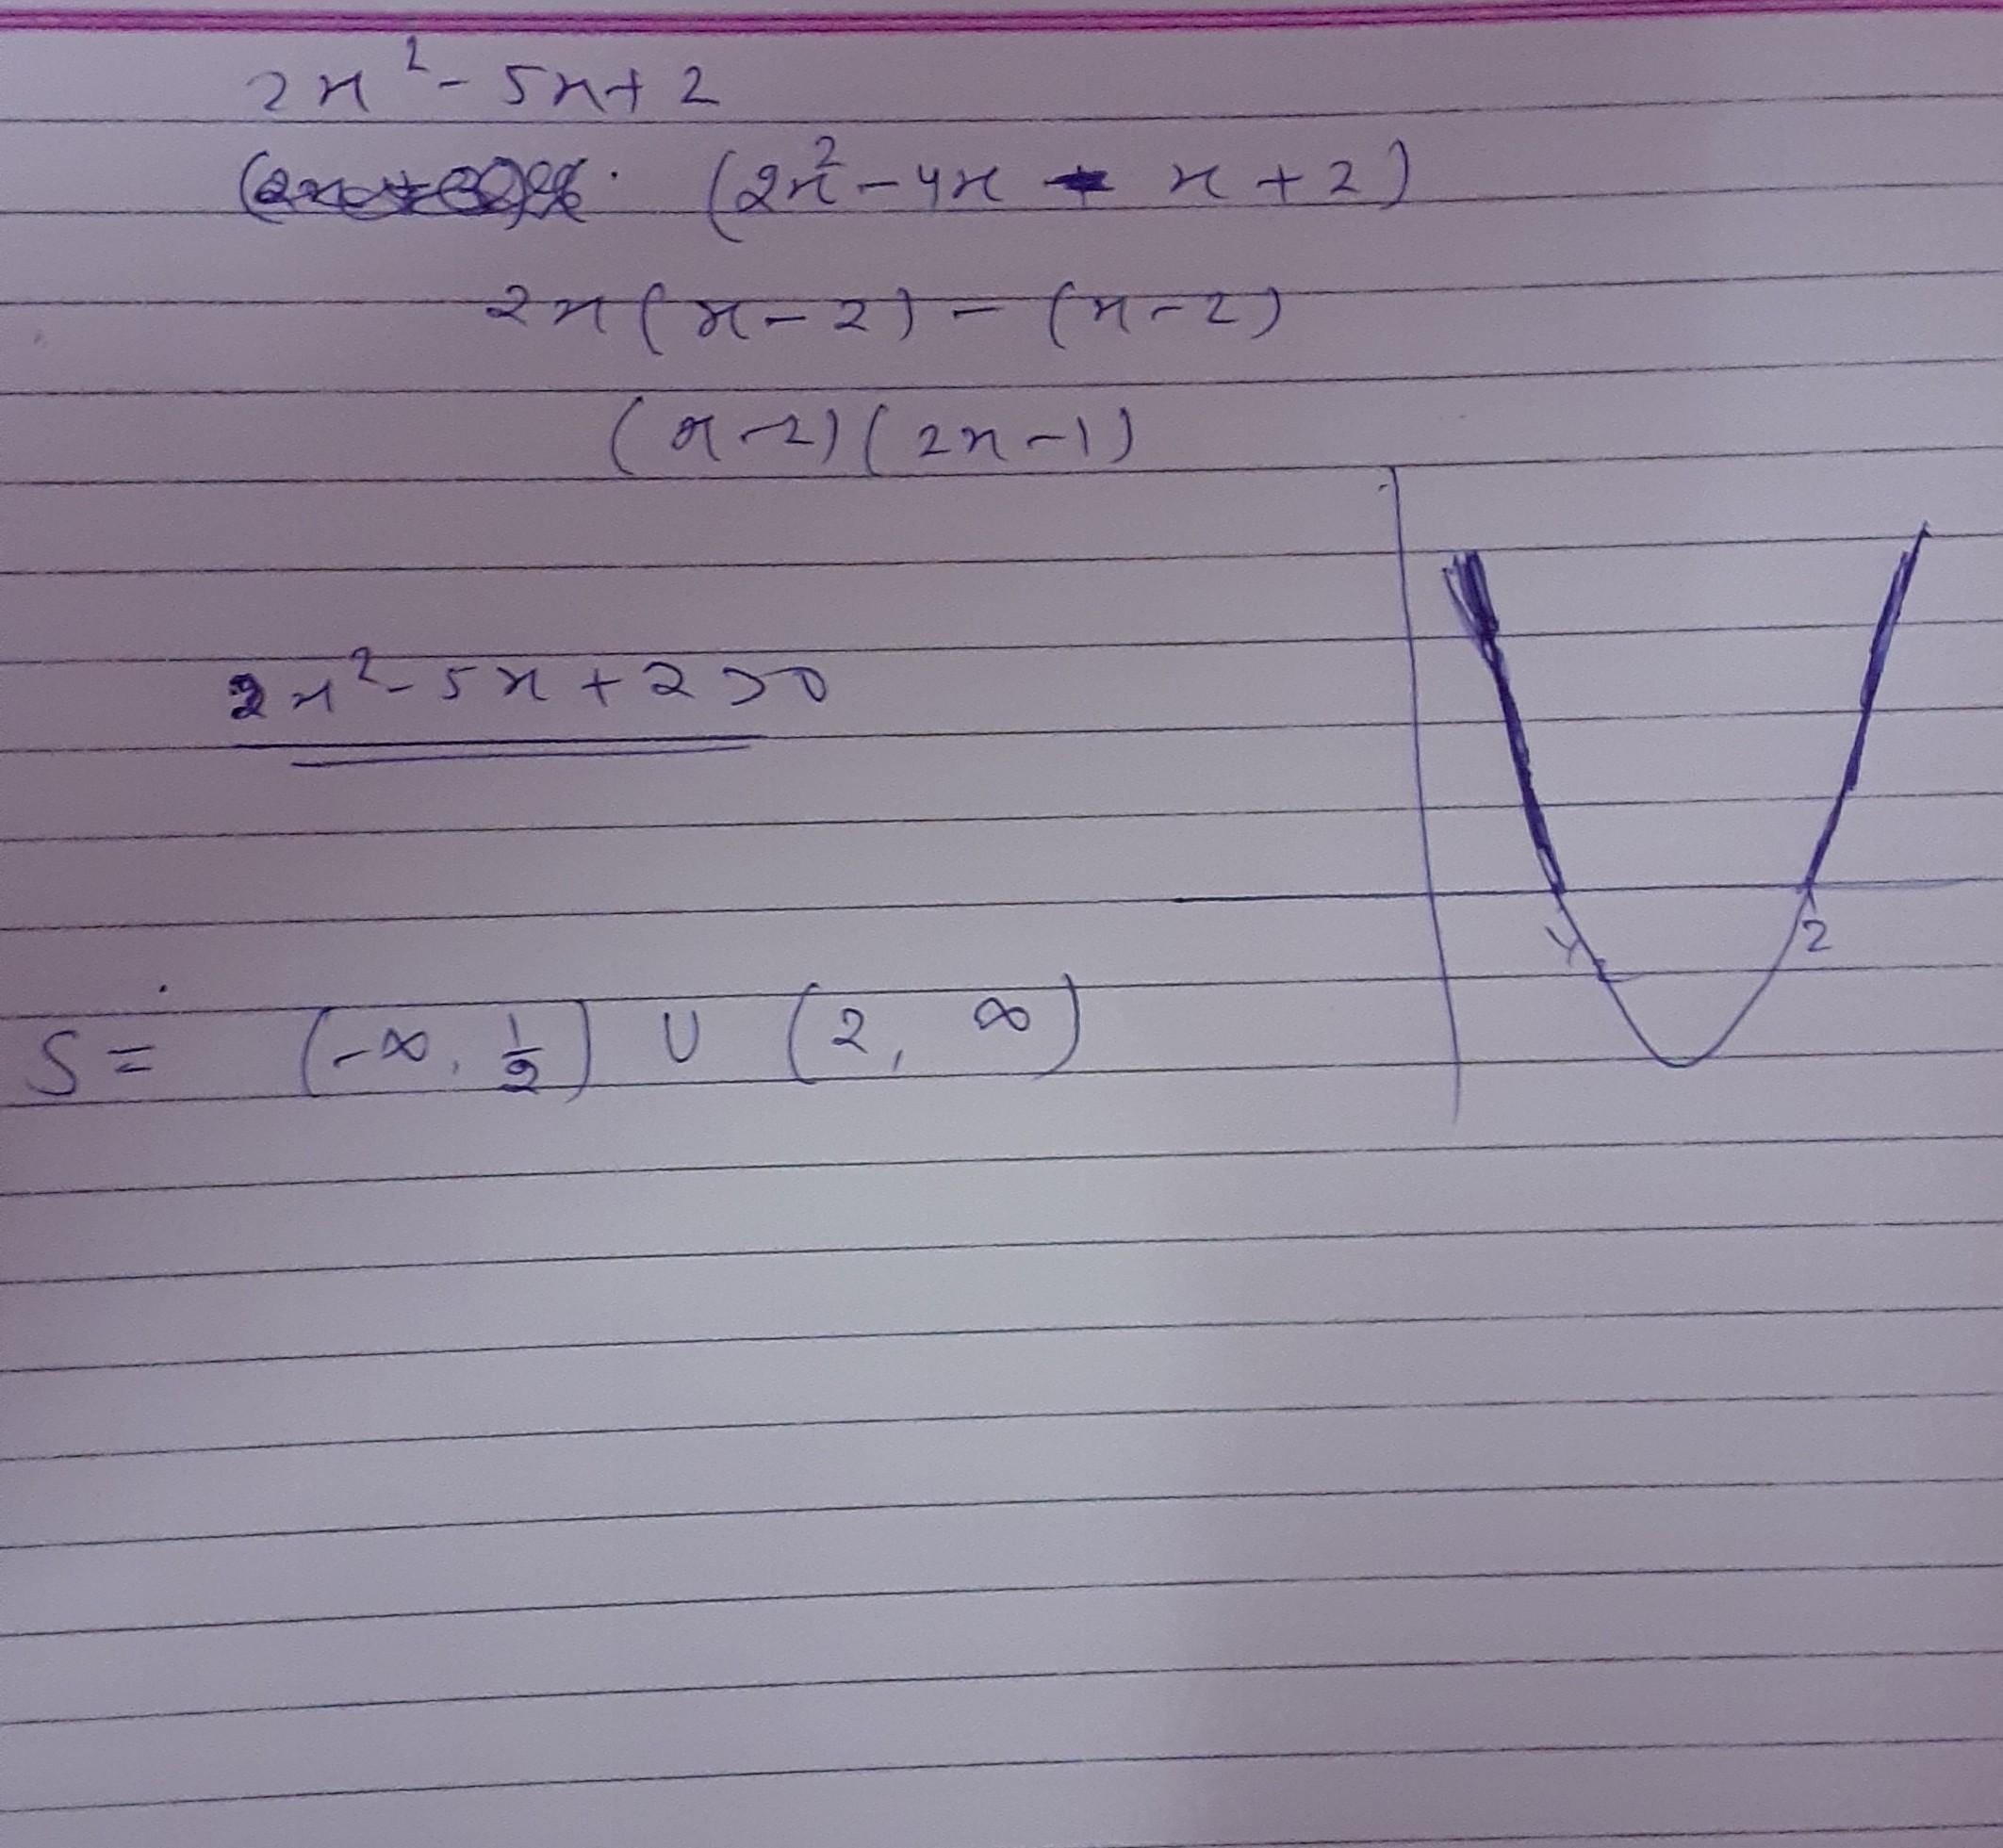 2x² - 5x + 2
(2x² - 4x - x + 2)
2x(x - 2) - (x - 2)
(x - 2)(2x - 1)
2x² - 5x + 2 > 0
2
S = (-∞, 1/2) ∪ (2, ∞)